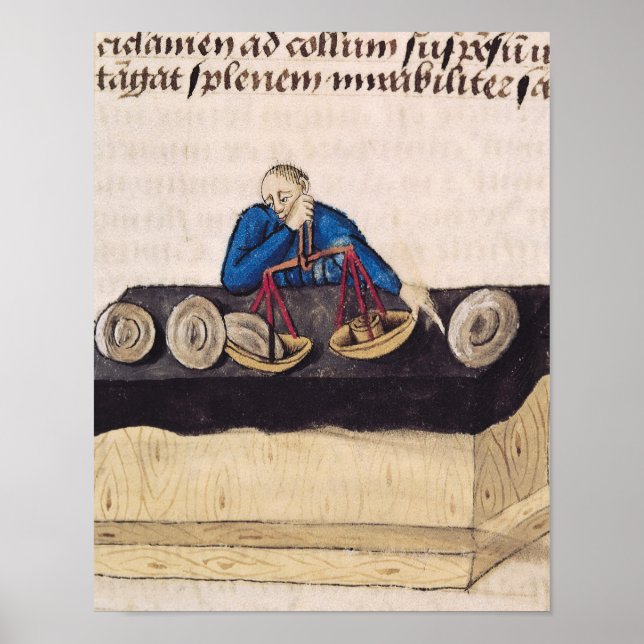 cidamen ad collum suspẽsũ
tãgat splenem mirabiliter